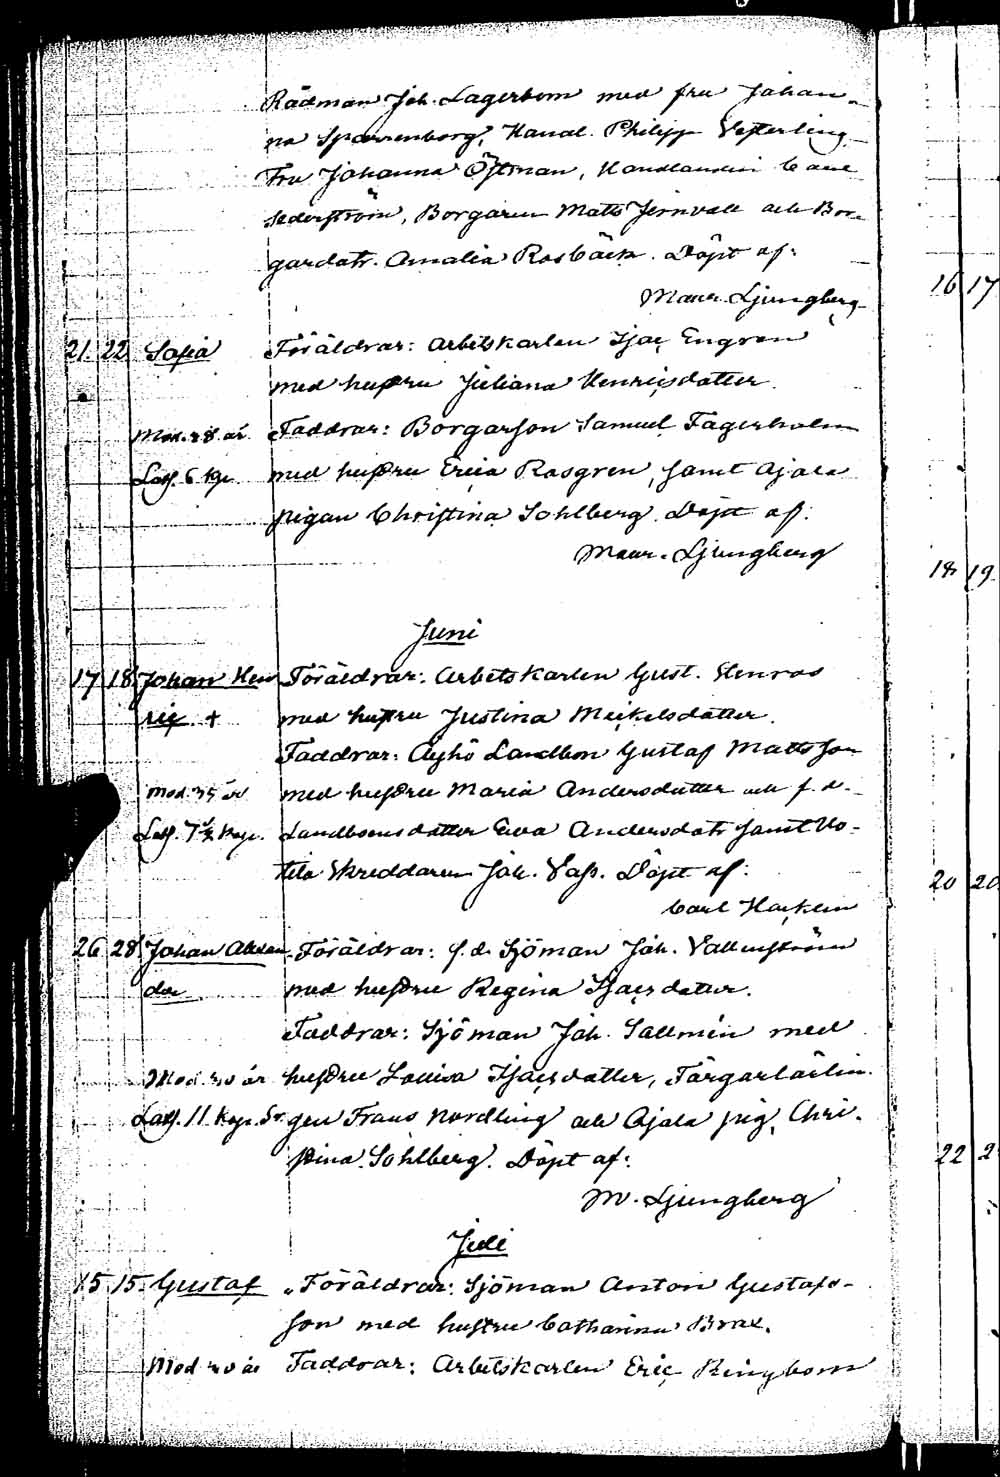 Rådman Joh. Lagerbom med fru Johan-
na Sparrenborg, Handl. Philipp Vesterling
Fru Johanna Östman, Handlanden Carl
Sederström, Borgaren Matts Jernvall och Bor-
gardotr. Amalia Rosbäck. Döpt af:
Maur. Ljungberg
16 17
21. 22 Sofia Föräldrar: Arbetskarlen Isac Engren
med hustru Juliana Henricsdotter.
Mod. 28 år. Faddrar: Borgarson Samuel Fagerholm
Lös. 6 kpr. med hustru Erica Rosgren, samt Ajala
pigan Christina Sohlberg. Döpt af:
Maur. Ljungberg
18 19
Juni
17 18 Johan Hen Föräldrar: Arbetskarlen Gust. Henros
ric + med hustru Justina Mickelsdotter.
Faddrar: Ayhö Landbon Gustaf Mattsson
Mod. 35 år med hustru Maria Andersdotter och f.d.
Lös. 7½ kpr. Landboens dotter Eva Andersdotr samt Uo-
tila Skreddaren Joh. Vass. Döpt af:
20 20
Carl Hacklin
26 28 Johan Alexan Föräldrar: f.d. Sjöman Joh. Vallenström
der med hustru Regina Isacsdotter.
Faddrar: Sjöman Joh. Sallmén med
Mod. 40 år hustru Lovisa Isacsdotter, Färgarlärlin
Lös. 11 kpr. Sr. gen Frans Nordling och Ajala pig. Chri-
stina Sohlberg. Döpt af:
22 2
M. Ljungberg
Juli
15 15 Gustaf Föräldrar: Sjöman Anton Gustafs-
son med hustru Catharina Brax.
Mod 40 år Faddrar: Arbetskarlen Eric Ringbom